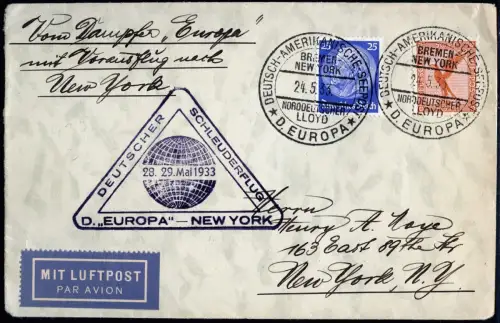 Vom Dampfer „Europa"
mit Vorausflug nach
New York
DEUTSCH-AMERIKANISCHE-SEEPOST
BREMEN-
NEW YORK
24.5.33
NORDDEUTSCHER
LLOYD
★ D. EUROPA ★
25
DEUTSCH-AMERIKANISCHE-SEEPOST
BREMEN-
NEW YORK
24.5.
NORDDEUTSCHER
LLOYD
★ D. EUROPA ★
DEUTSCHER SCHLEUDERFLUG
28. 29. Mai 1933
D. „EUROPA" — NEW YORK
Herrn
Henry A. Noyes
163 East 89the Str
New York, N.Y.
MIT LUFTPOST
PAR AVION